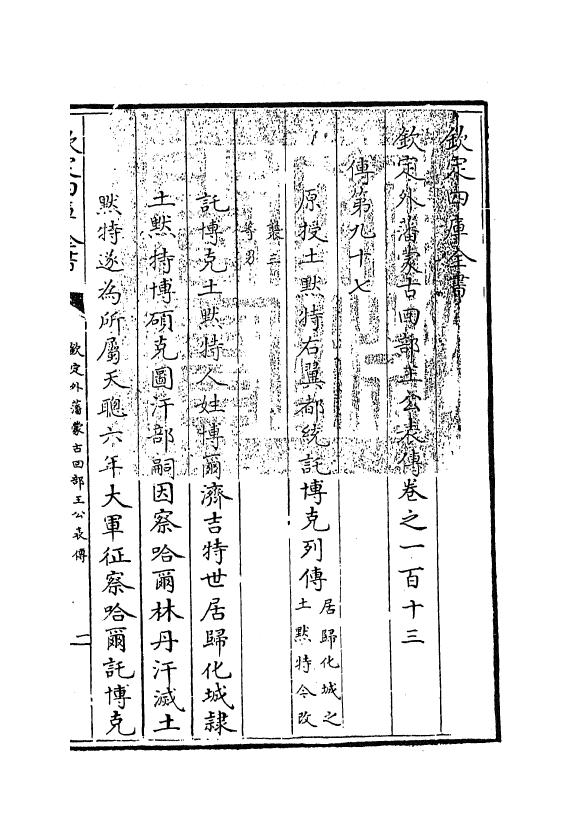 欽定四庫全書
欽定外藩蒙古回部王公表傳卷之一百十三
傳第九十七
原授土默特右翼都統託博克列傳居歸化城之
土默特今改
襲三
等男
託博克土默特人姓博爾濟吉特世居歸化城隸
土默特博碩克圖汗部嗣因察哈爾林丹汗滅土
默特遂為所屬天聰六年大軍征察哈爾託博克
欽定四庫全書
欽定外藩蒙古回部王公表傳
二